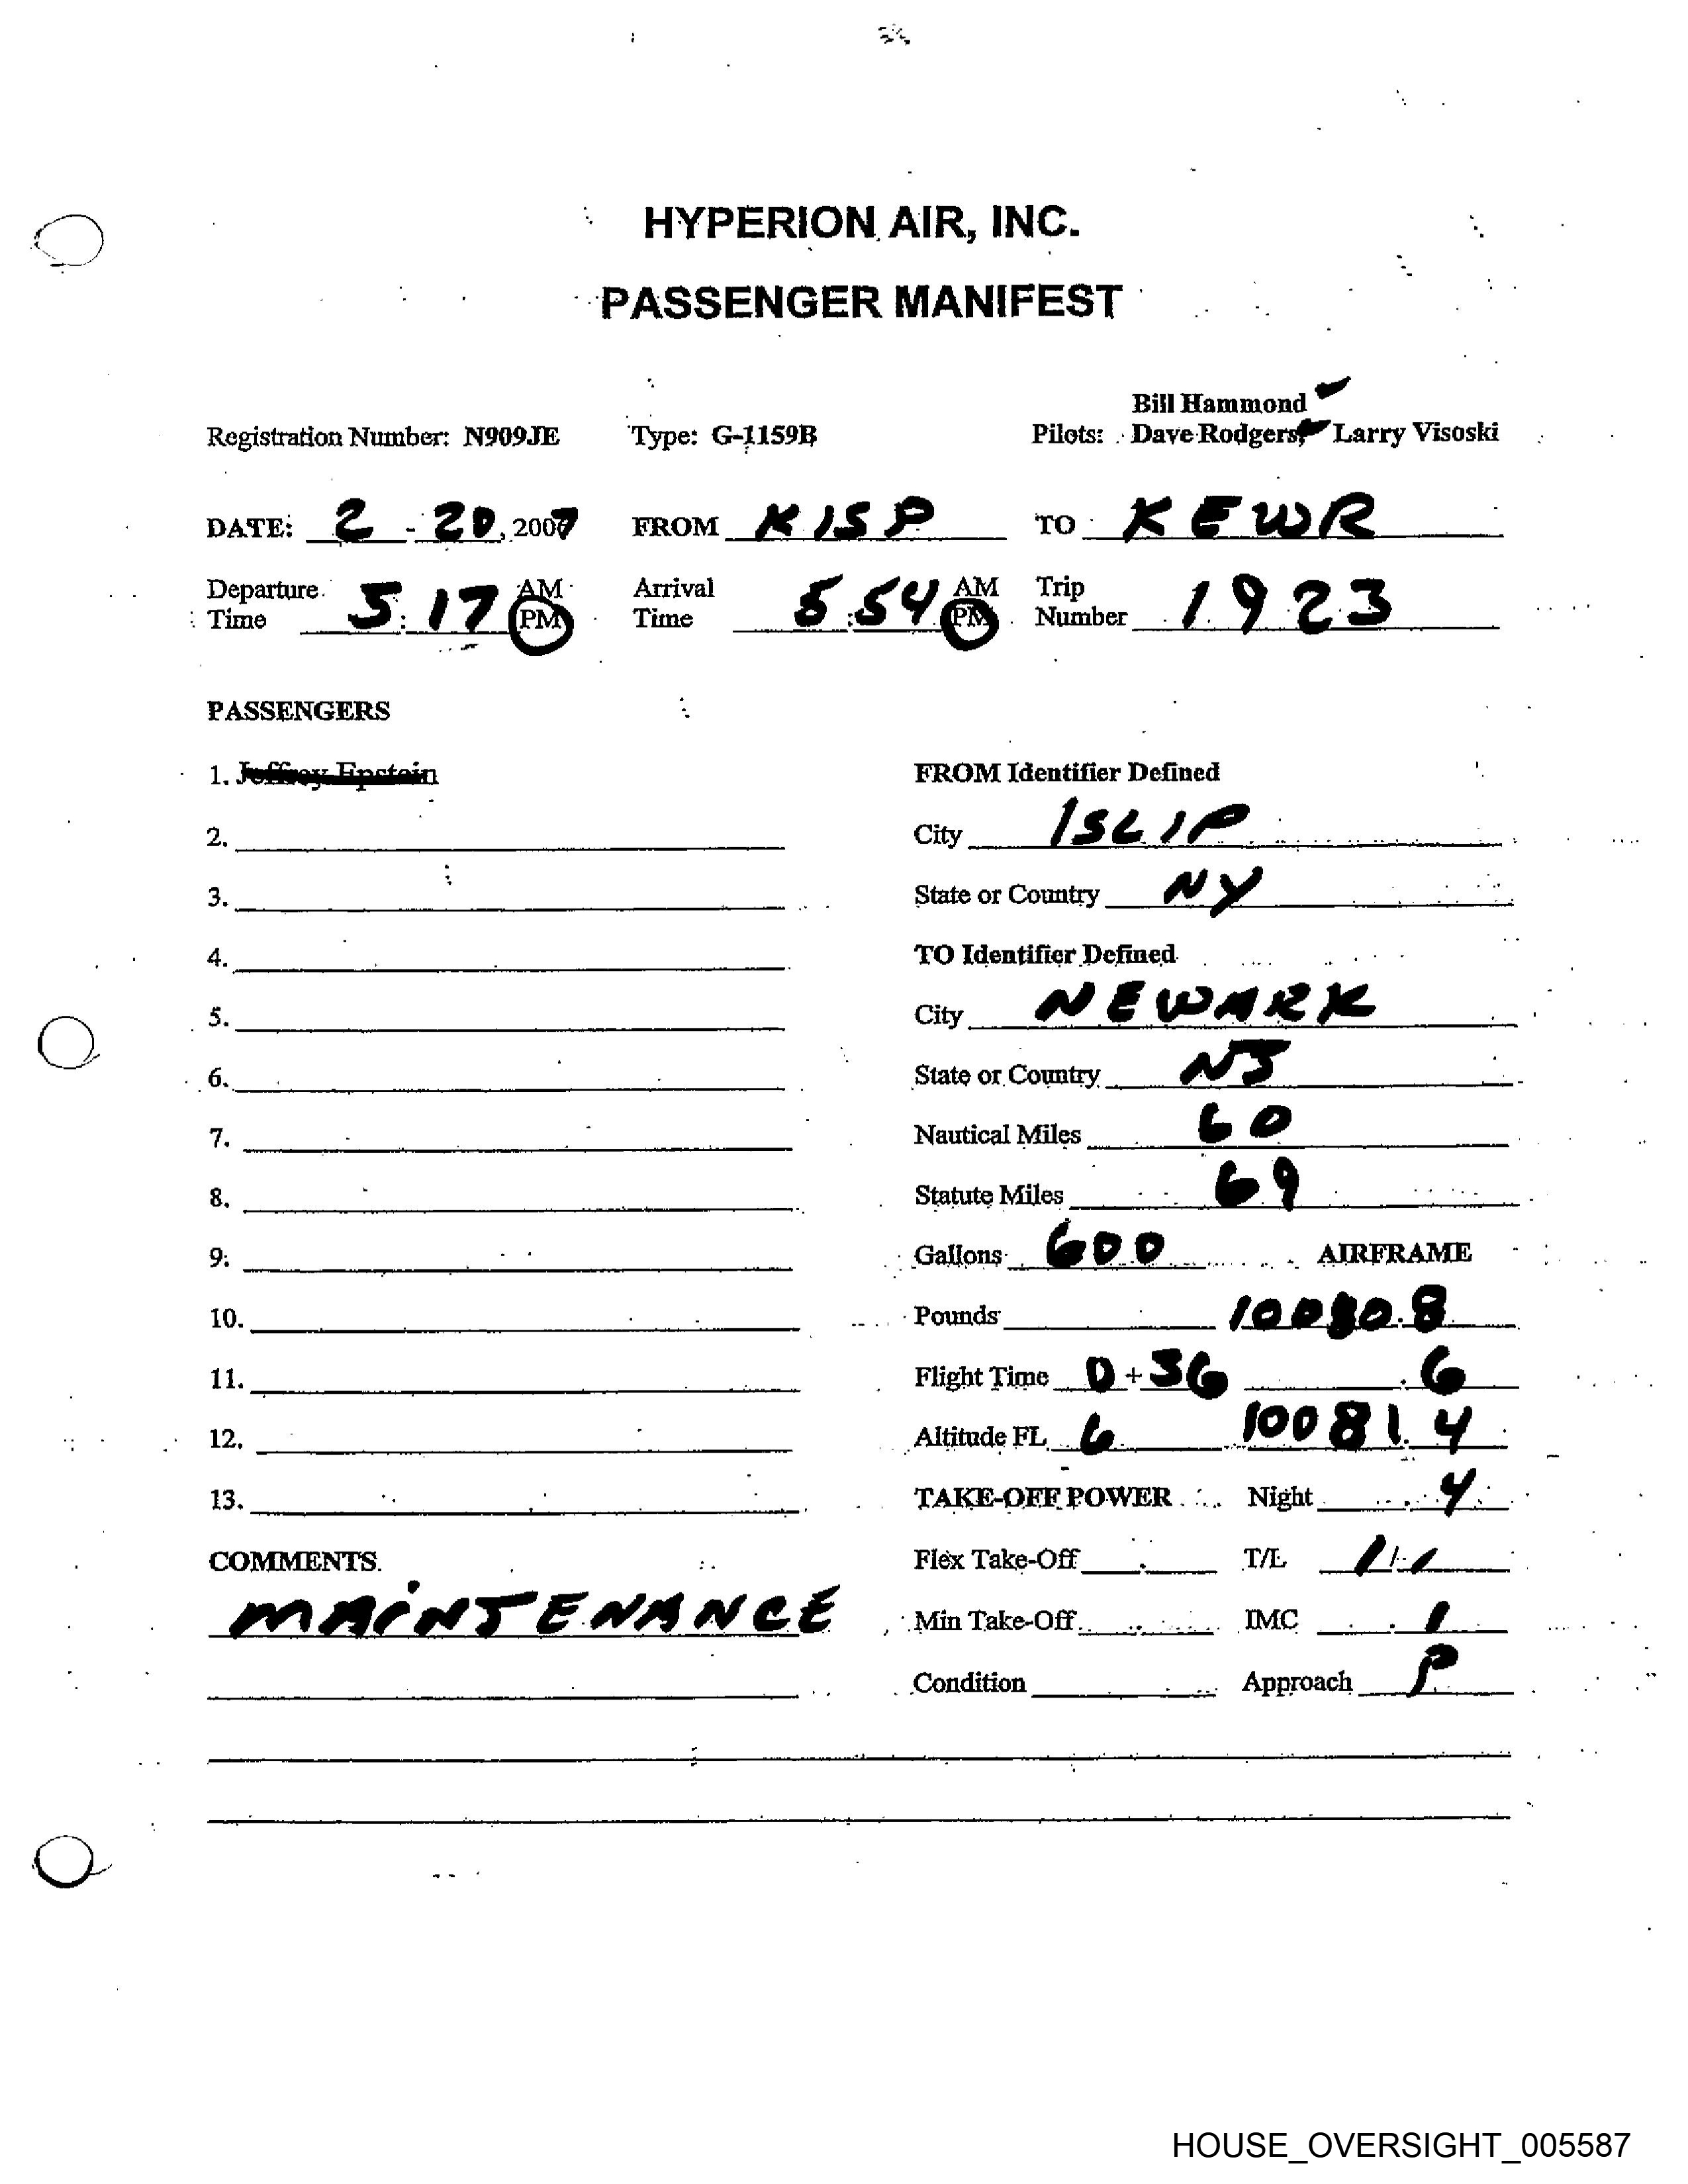 HYPERION AIR, INC.
PASSENGER MANIFEST
Bill Hammond
Registration Number: N909JE Type: G-1159B Pilots: Dave Rodgers, Larry Visoski
DATE: 2 - 20, 2007 FROM KISP TO KEWR
Departure Time 5:17 AM PM Arrival Time 5:54 AM PM Trip Number 1923
PASSENGERS
1. Jeffrey Epstein
2.
3.
4.
5.
6.
7.
8.
9.
10.
11.
12.
13.
COMMENTS
MAINTENANCE
FROM Identifier Defined
City ISLIP
State or Country NY
TO Identifier Defined
City NEWARK
State or Country NJ
Nautical Miles 60
Statute Miles 69
Gallons 600 AIRFRAME
Pounds 10080.8
Flight Time 0+36 .6
Altitude FL 6 10081.4
TAKE-OFF POWER Night .4
Flex Take-Off T/L 1/1
Min Take-Off IMC .1
Condition Approach P
HOUSE_OVERSIGHT_005587